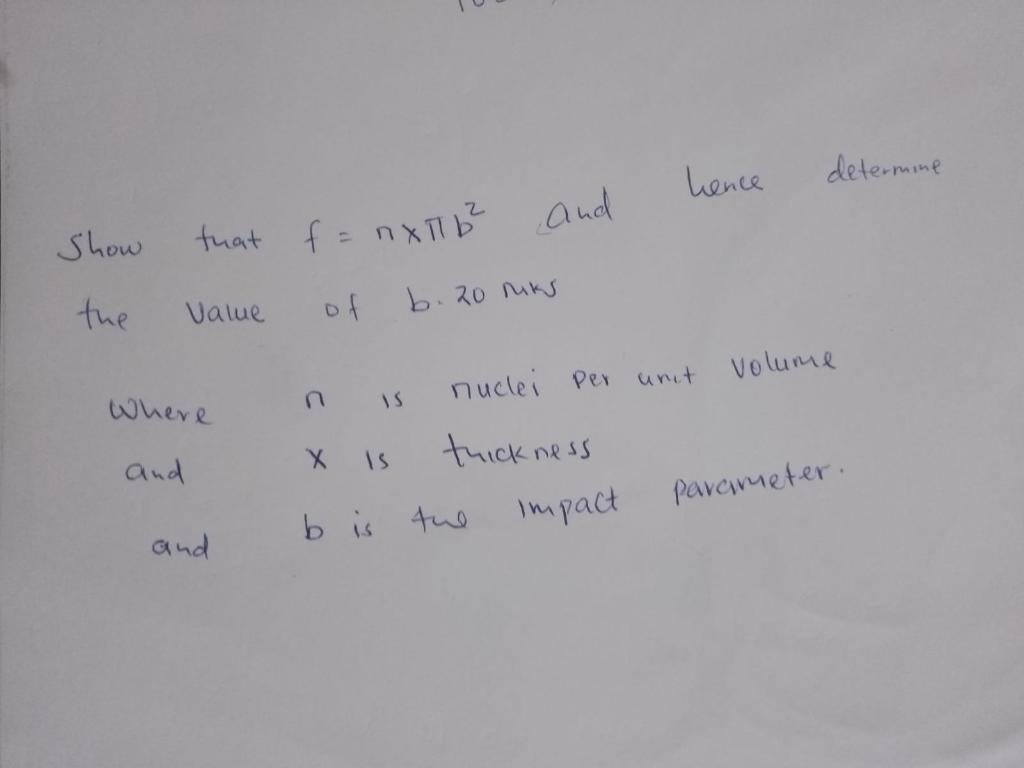 Show that f = nxπb² and hence determine
the value of b. 20 mks
Where n is nuclei per unit volume
and x is thickness
and b is the impact parameter.